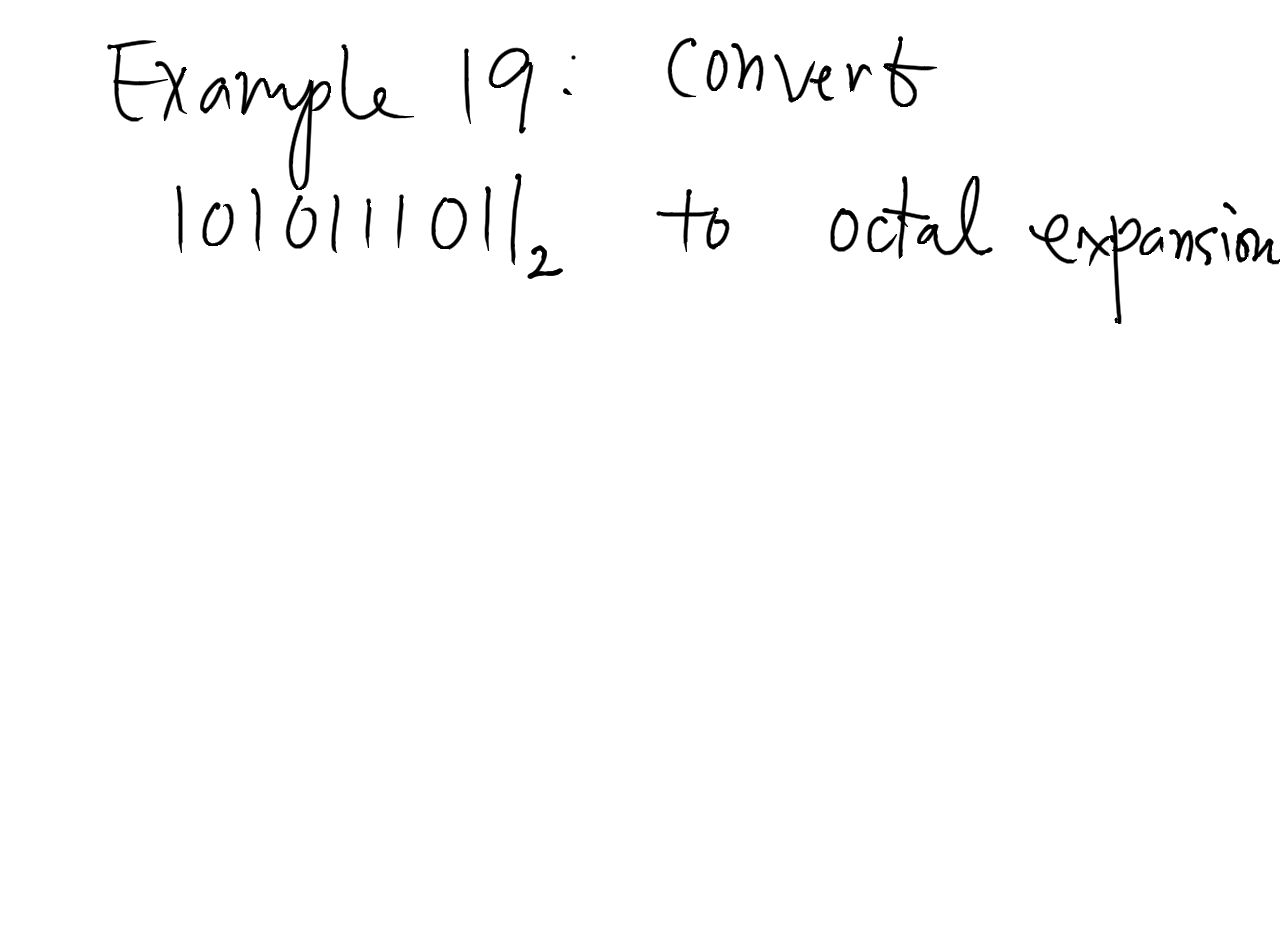 Example 19: Convert
1010111011₂ to octal expansion